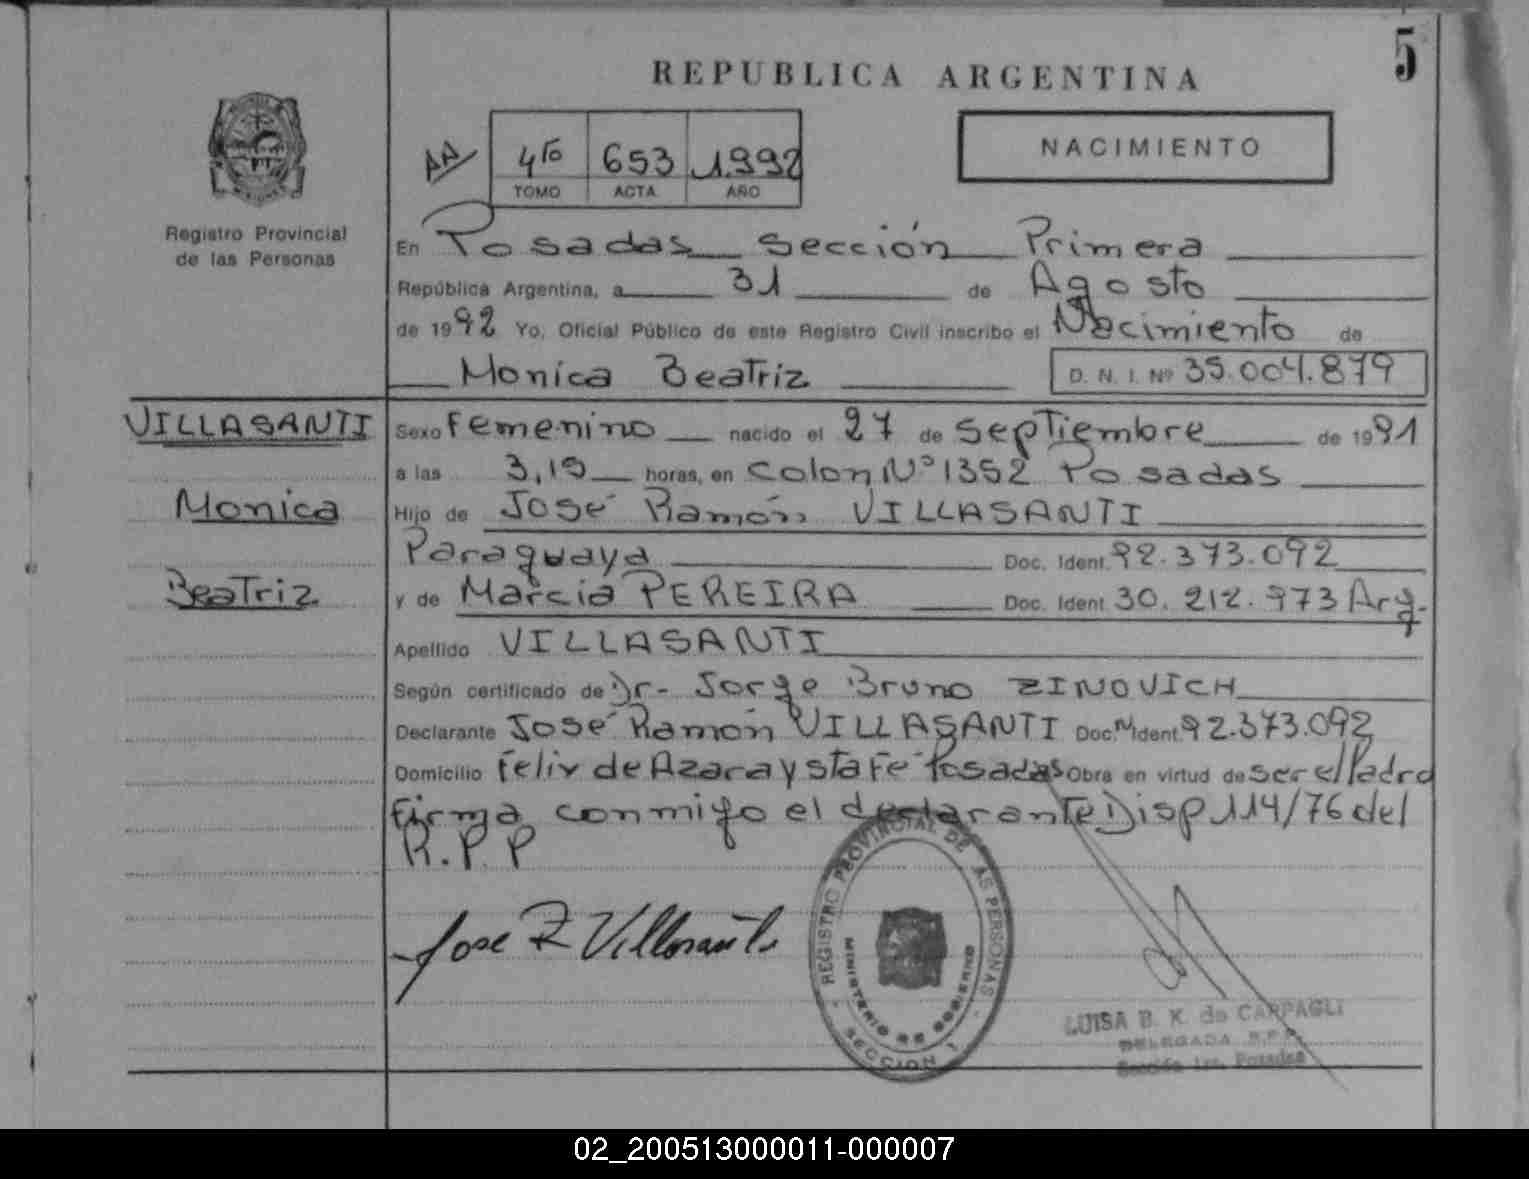 5
REPUBLICA ARGENTINA
AA
4to 653 1.992
TOMO ACTA AÑO
NACIMIENTO
Registro Provincial
de las Personas
En Posadas Sección Primera
República Argentina, a 31 de Agosto
de 1992 Yo, Oficial Público de este Registro Civil inscribo el Nacimiento de
Monica Beatriz D. N. I. Nº 35.004.879
VILLASANTI
Monica
Beatriz
Sexo Femenino nacido el 27 de Septiembre de 1991
a las 3,15 horas, en Colon Nº 1352 Posadas
Hijo de José Ramón VILLASANTI
Paraguaya Doc. Ident. 92.373.092
y de Marcia PEREIRA Doc. Ident. 30.212.973 Arg.
Apellido VILLASANTI
Según certificado de Dr- Jorge Bruno ZINOVICH
Declarante José Ramón VILLASANTI Doc. Ident. 92.373.092
Domicilio Felix de Azara y Sta Fe Posadas Obra en virtud de ser el Padre
Firma conmigo el declarante Disp 114/76 del
R.P.P
Jose R Villasanti
REGISTRO PROVINCIAL DE LAS PERSONAS
MINISTERIO DE GOBIERNO
SECCION 1
LUISA B. K. de CARPAGLI
DELEGADA R.P.P.
Sección 1ra. Posadas
02_200513000011-000007